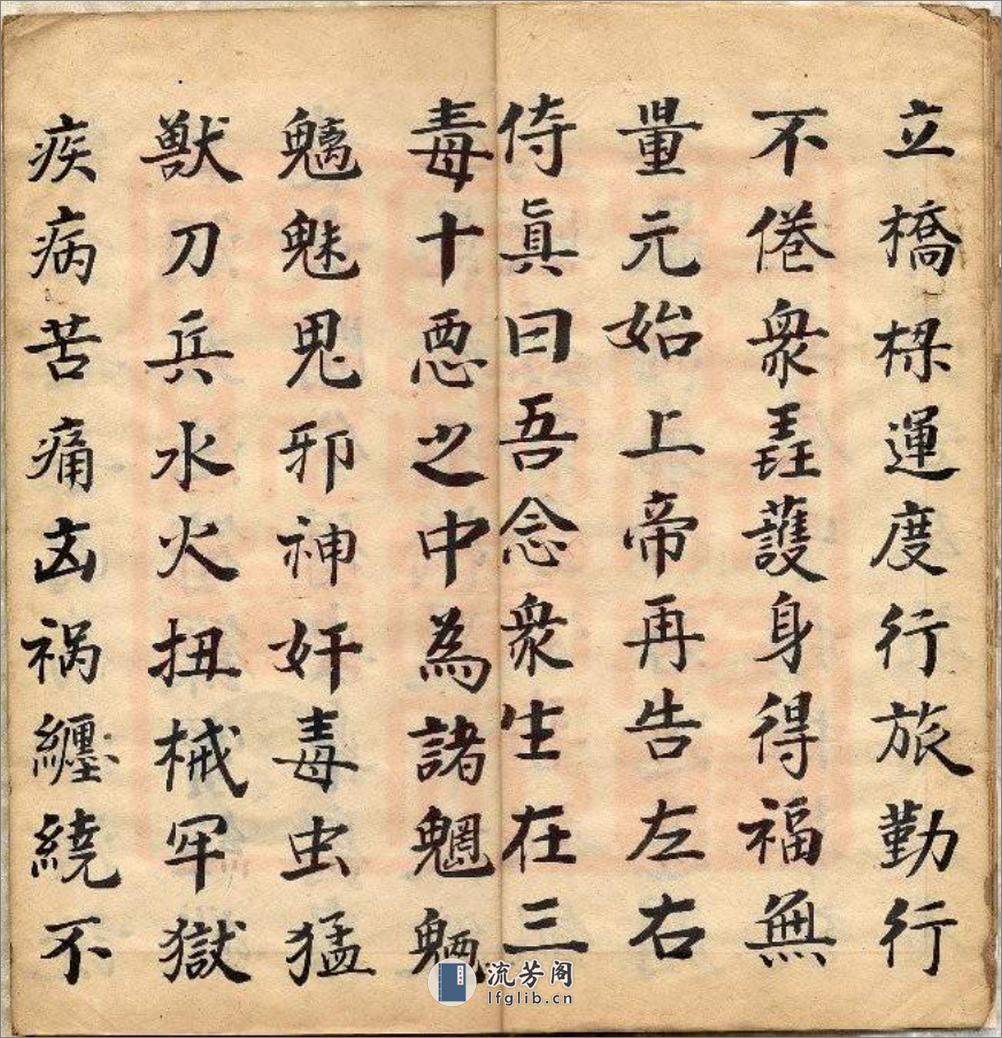 立橋樑運度行旅勤行
不倦衆聖護身得福無
量元始上帝再告左右
侍眞曰吾念衆生在三
毒十惡之中為諸魍魎
魑魅鬼邪神奸毒虫猛
獸刀兵水火扭械牢獄
疾病苦痛凶祸纏繞不
流芳阁
lfglib.cn